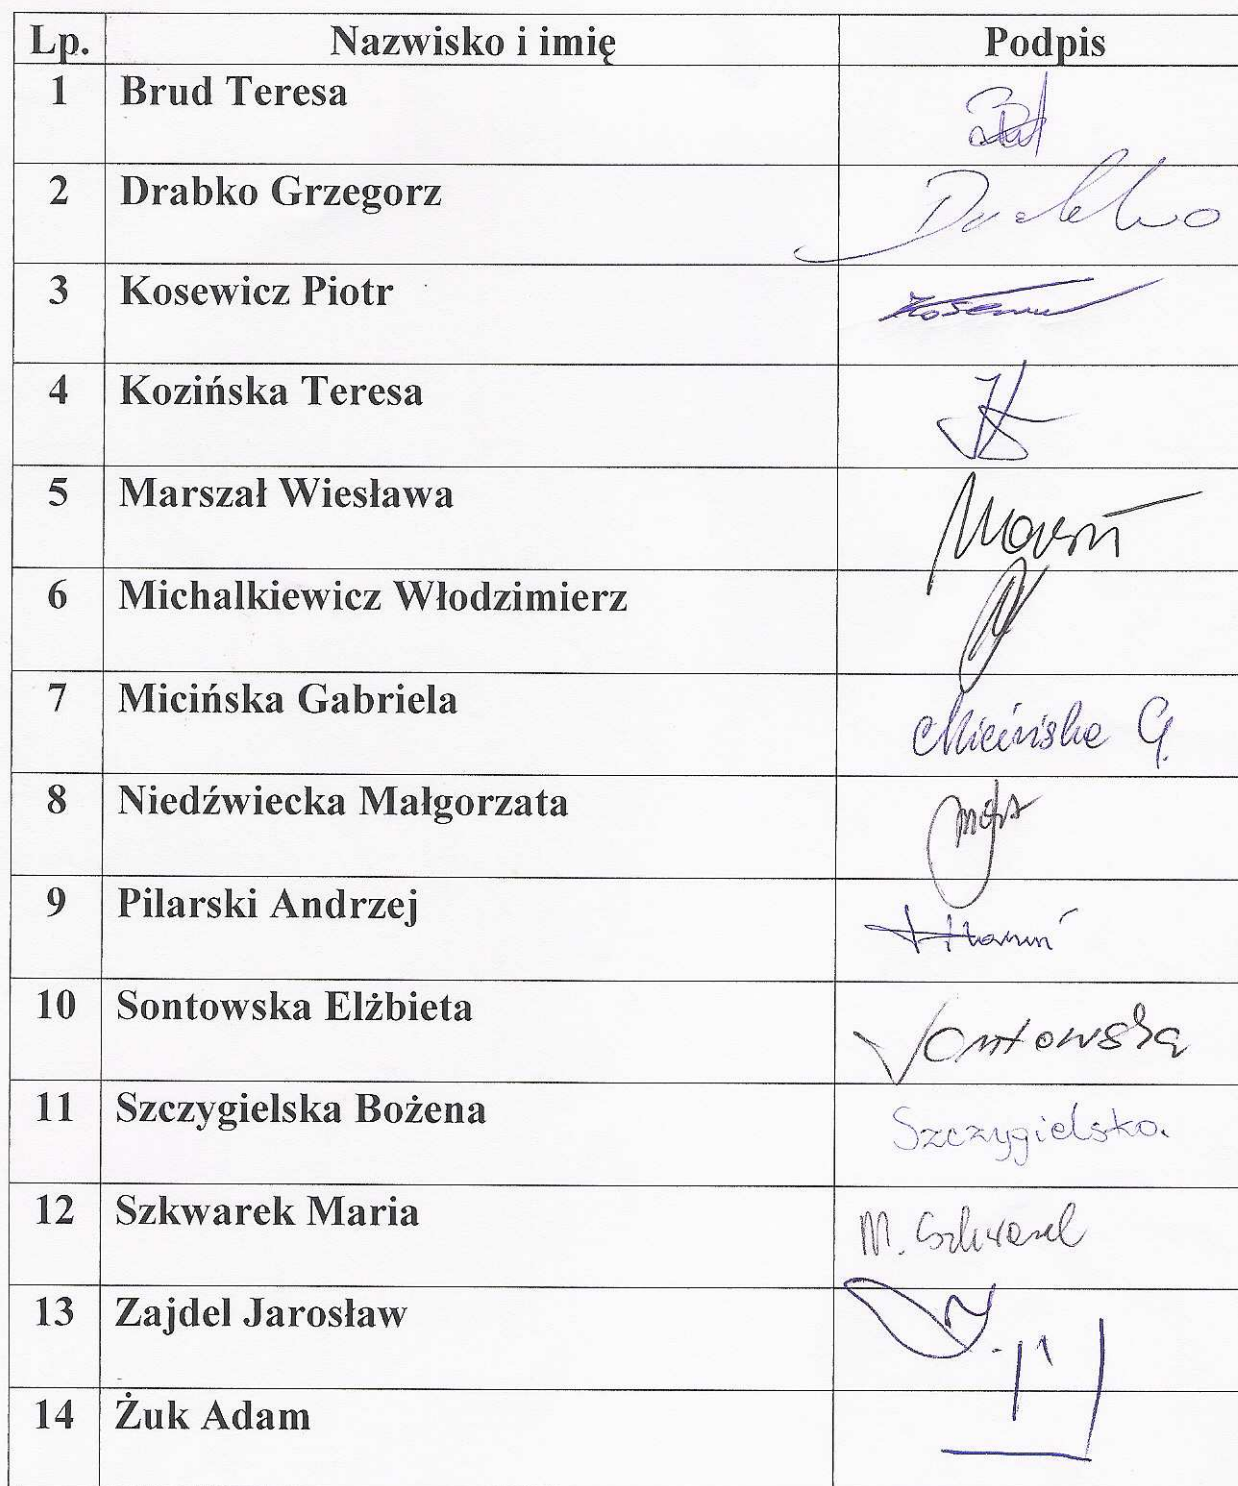 Lp. Nazwisko i imię Podpis
1 Brud Teresa
2 Drabko Grzegorz
3 Kosewicz Piotr
4 Kozińska Teresa
5 Marszał Wiesława
6 Michalkiewicz Włodzimierz
7 Micińska Gabriela Micińska G.
8 Niedźwiecka Małgorzata
9 Pilarski Andrzej
10 Sontowska Elżbieta Sontowska
11 Szczygielska Bożena Szczygielska.
12 Szkwarek Maria M. Szkwarek
13 Zajdel Jarosław
14 Żuk Adam